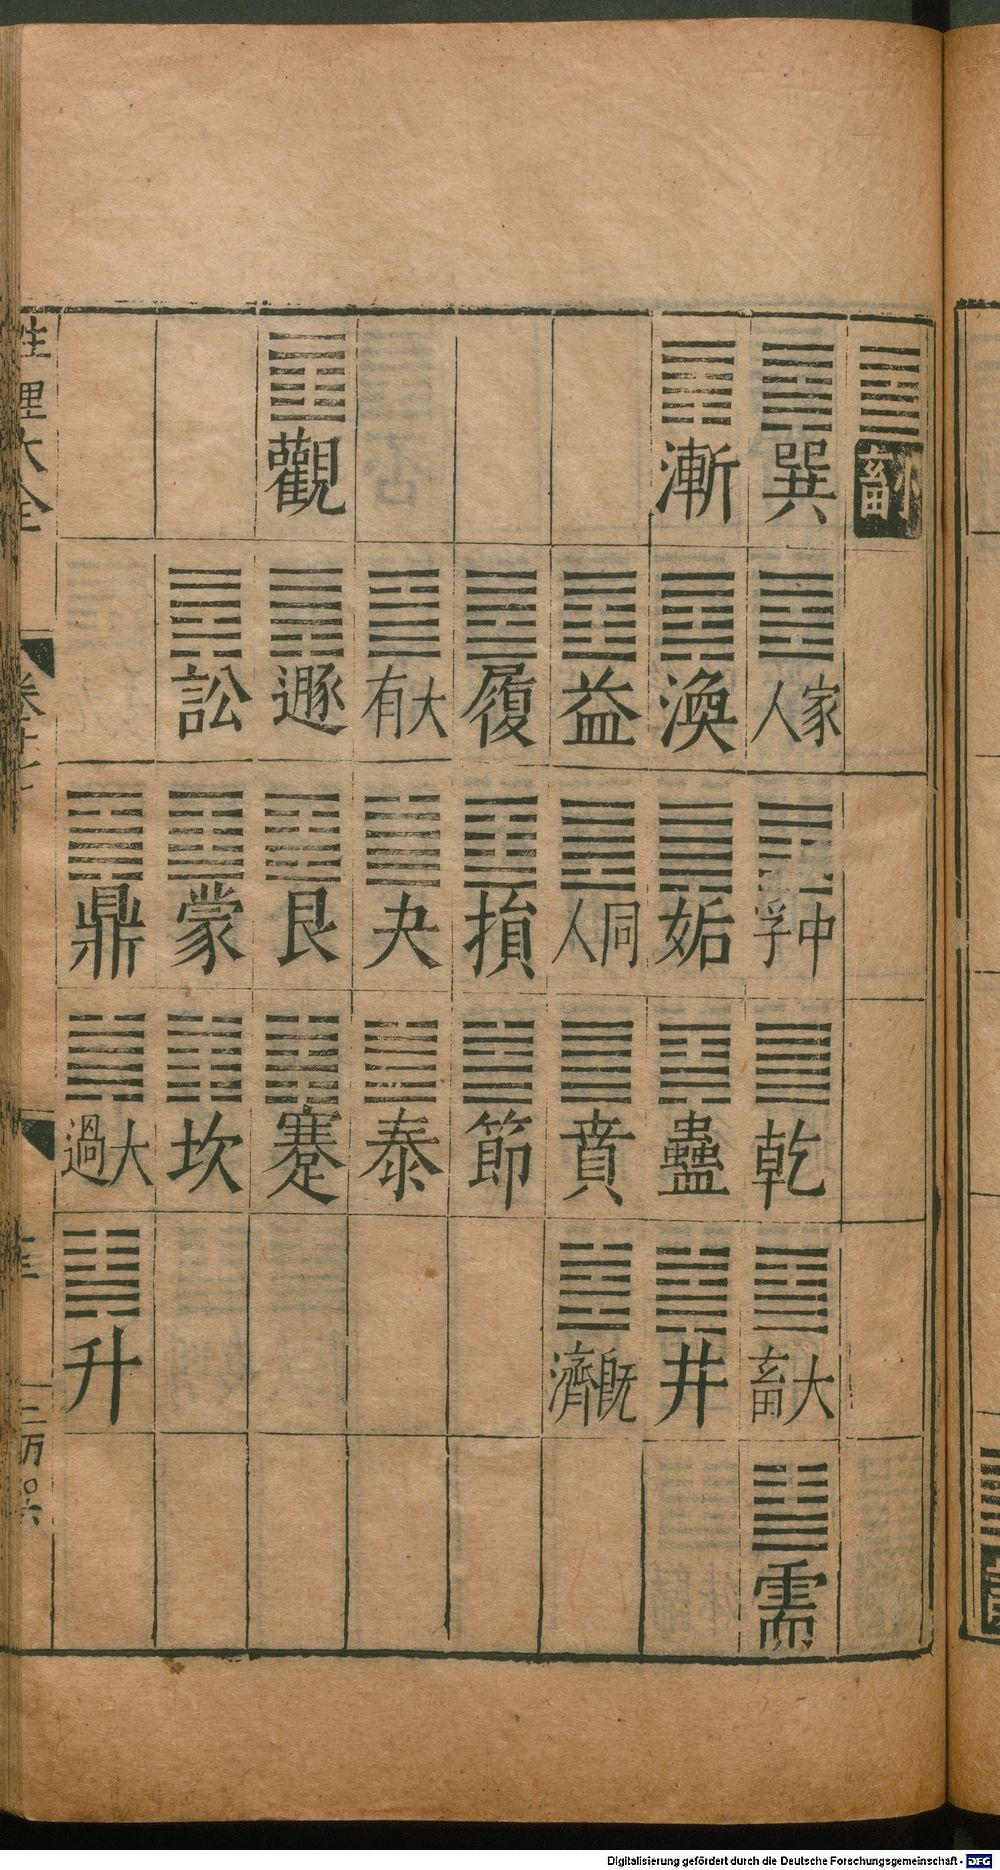 小畜
巽
家人
中孚
乾
大畜
需
漸
渙
姤
蠱
井
益
同人
賁
既濟
履
損
節
大有
夬
泰
觀
遯
艮
蹇
訟
蒙
坎
鼎
大過
升
性理大全
Digitalisierung gefördert durch die Deutsche Forschungsgemeinschaft - DFG